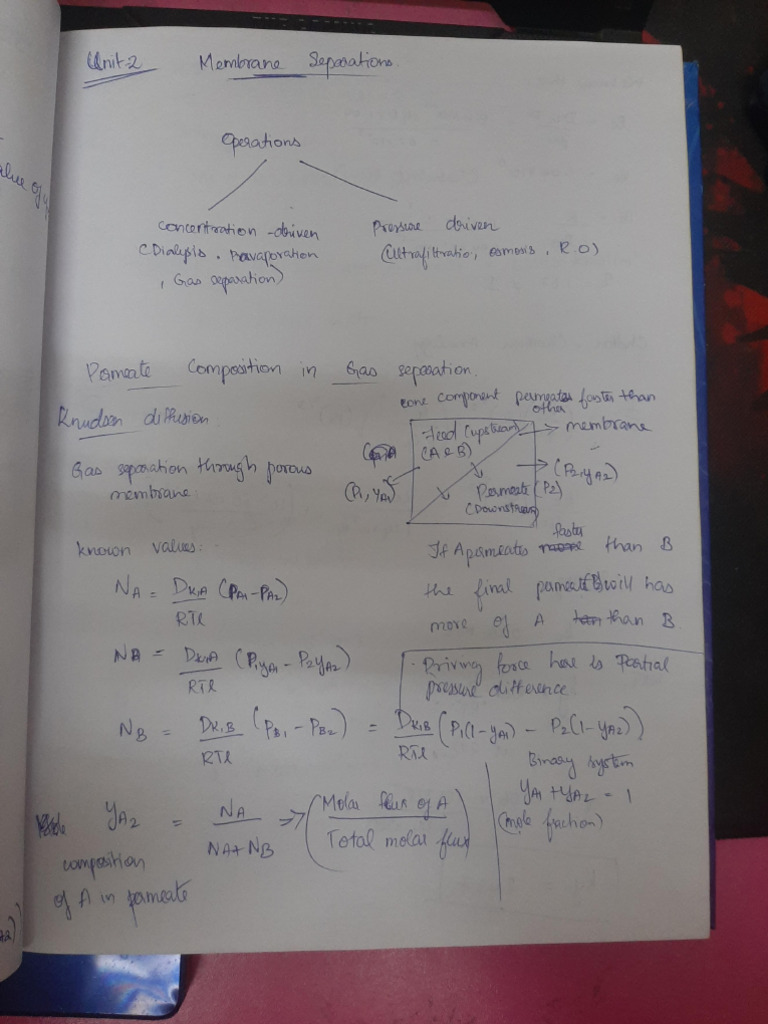 Unit-2 Membrane Separations
Operations
concentration-driven
(Dialysis, Pervaporation
, Gas separation)
Pressure driven
(Ultrafiltratio, osmosis, R.O)
Permeate Composition in Gas separation.
one component permeates faster than
other
Knudsen diffusion
Feed (upstream)
(A & B)
→ membrane
Gas separation through porous
membrane.
(P1, yA1)
(P2, yA2)
Permeate (P2)
(Downstream)
known values:-
If A permeates faster than B
the final permeate will has
more of A than B.
NA = DK,A/RTl (PA1 - PA2)
NB = DK,A/RTl (P1yA1 - P2yA2)
. Driving force here is Partial
pressure difference.
NB = DK,B/RTl (PB1 - PB2) = DK,B/RTl (P1(1-yA1) - P2(1-yA2))
Binary system
yA1 + yA2 = 1
(mole fraction)
yA2 = NA/NA+NB => (Molar flux of A/Total molar flux)
composition
of A in permeate
value of y
A2)